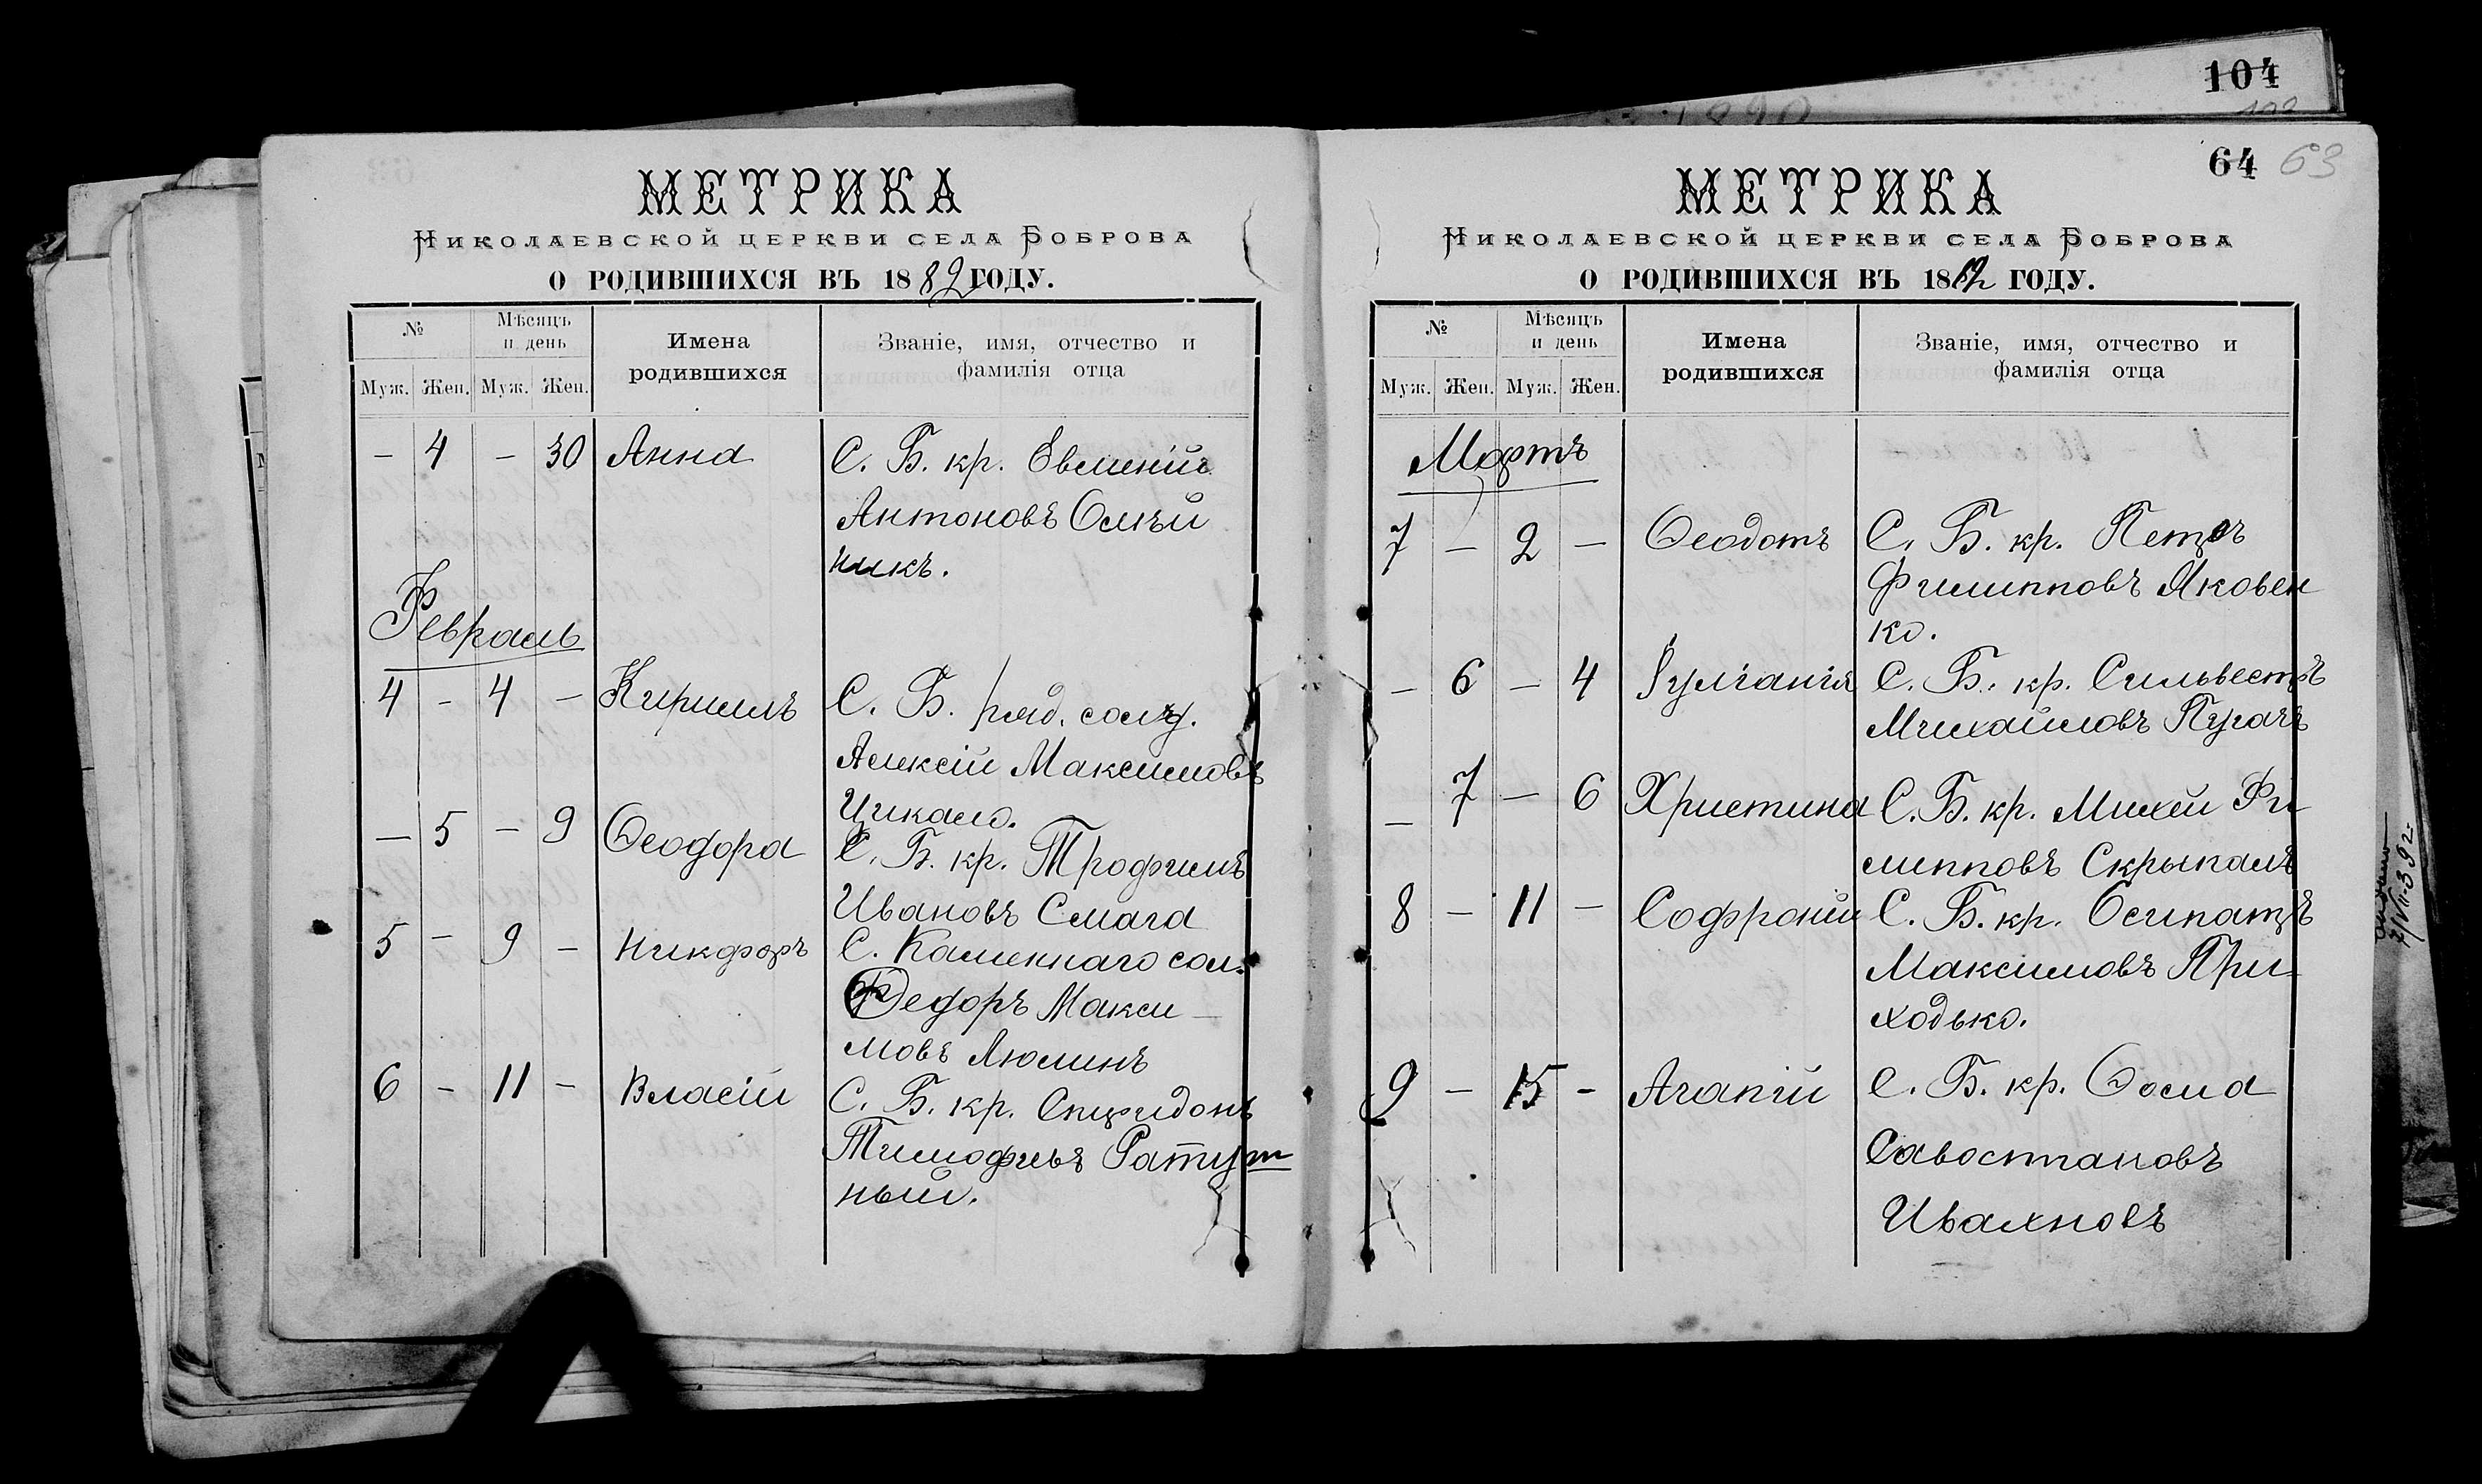 104
МЕТРИКА
Николаевской церкви села Боброва
О РОДИВШИХСЯ ВЪ 1882 ГОДУ.
№ Мѣсяцъ и день Имена родившихся Званіе, имя, отчество и фамилія отца
Муж. Жен. Муж. Жен.
– 4 – 30 Анна С. Б. кр. Евменій
Антоновъ Олѣй
никъ.
Февраль
4 – 4 – Кириллъ С. Б. ряд. солд.
Алексій Максимовъ
Цикало.
– 5 – 9 Ѳеодора С. Б. кр. Трофимъ
Ивановъ Смага
5 – 9 – Никифоръ С. Каменнаго сол.
Федоръ Макси
мовъ Люлинъ
6 – 11 – Власій С. Б. кр. Спиридонъ
Тимофѣевъ Ратуш
ный.
64 63
МЕТРИКА
Николаевской церкви села Боброва
О РОДИВШИХСЯ ВЪ 1882 ГОДУ.
№ Мѣсяцъ и день Имена родившихся Званіе, имя, отчество и фамилія отца
Муж. Жен. Муж. Жен.
Мартъ
7 – 2 – Ѳеодотъ С. Б. кр. Петръ
Филипповъ Яковен
ко.
– 6 – 4 Іуліанія С. Б. кр. Сильвестръ
Михайловъ Пугачъ
– 7 – 6 Христина С. Б. кр. Михей Фи
липповъ Скрыпаль
8 – 11 – Софроній С. Б. кр. Осипатръ
Максимовъ При
ходько.
9 – 15 – Агапій С. Б. кр. Ѳома
Савостіановъ
Ивахновъ